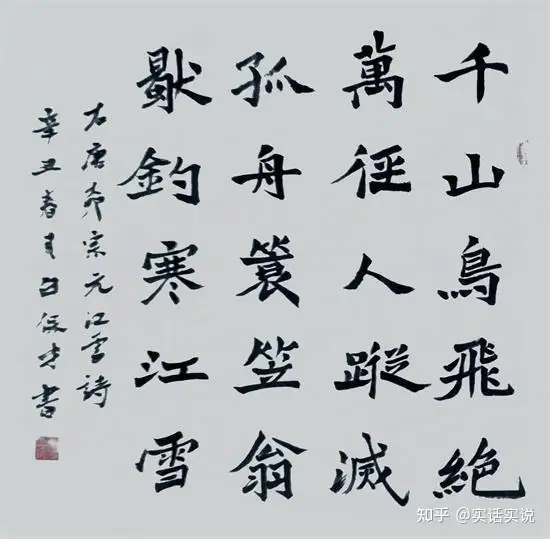 千山鳥飛絶
萬徑人蹤滅
孤舟簑笠翁
獨釣寒江雪
右唐柳宗元江雪詩
辛丑春月白保書
知乎 @实话实说